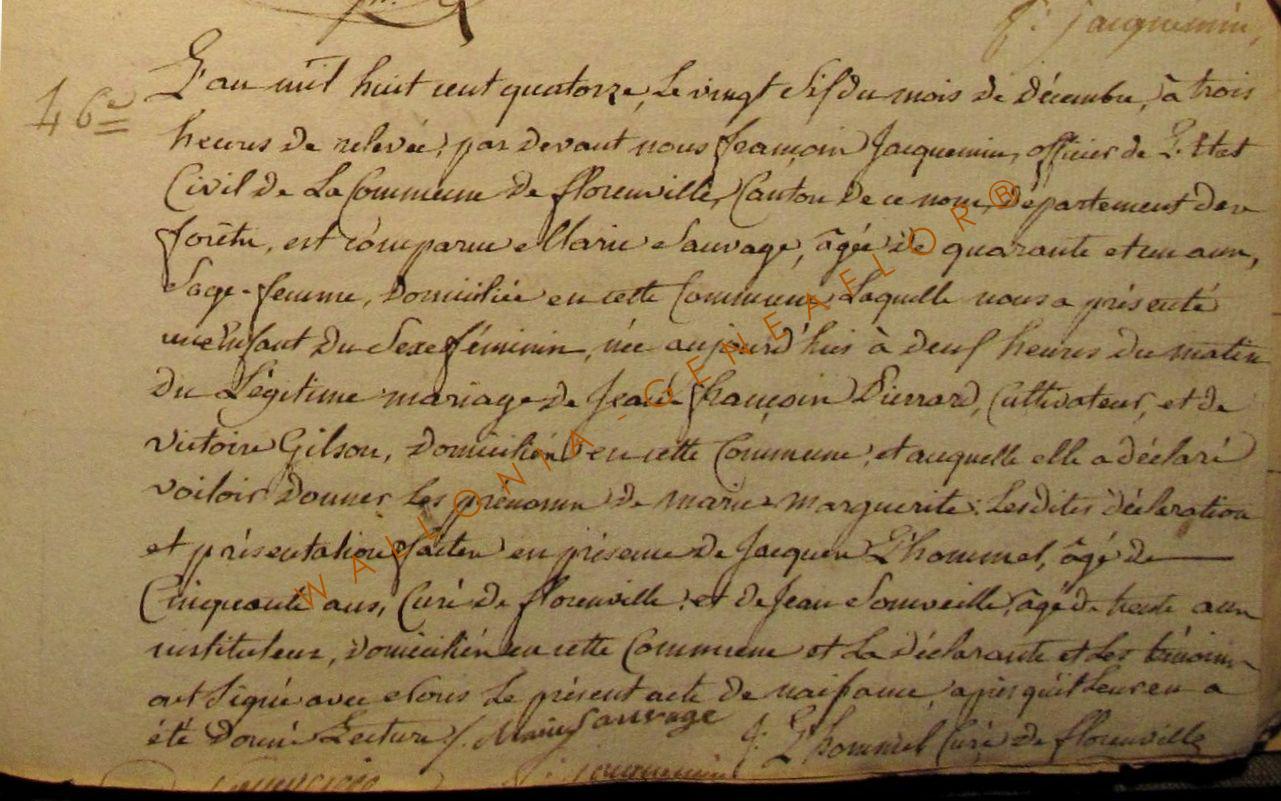 f: Jacquemin,
46e
L'an mil huit cent quatorze, le vingt sif du mois de décembre, à trois
heures de relevée, par devant nous françois Jacquemin, officier de l'Etat
Civil de La Commune de florenville, Canton de ce nom, département des
forêts, est comparue Marie Sauvage, âgée de quarante et un ans,
Sage-femme, domiciliée en cette Commune, Laquelle nous a présenté
un Enfant du Sexe féminin, née aujourd'hui à deuf heures du matin
du Légitime mariage de Jean françois Pierrard, Cultivateur, et de
victoire Gilson, domiciliés en cette Commune, et auquelle elle a déclaré
voiloir donner les prénoms de marie marguerite. Lesdites déclaration
et présentation faites en présence de Jacques L'hommel, âgé de
Cinquante ans, Curé de florenville, et de Jean Somveille, âgé de trente ans
instituteur, domiciliés en cette Commune et La déclarante et Les témoins
ont Signé avec Nous Le présent acte de naissance, après qu'il leur en a
été donné Lecture /. Marie Sauvage J: L'hommel Curé de florenville
WALLONIA-GENEAFLOR®